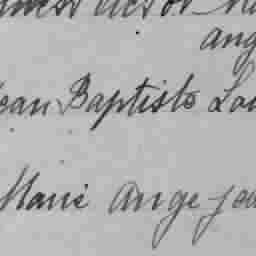 ang
ean Baptiste Lou
Marie Ange Jea